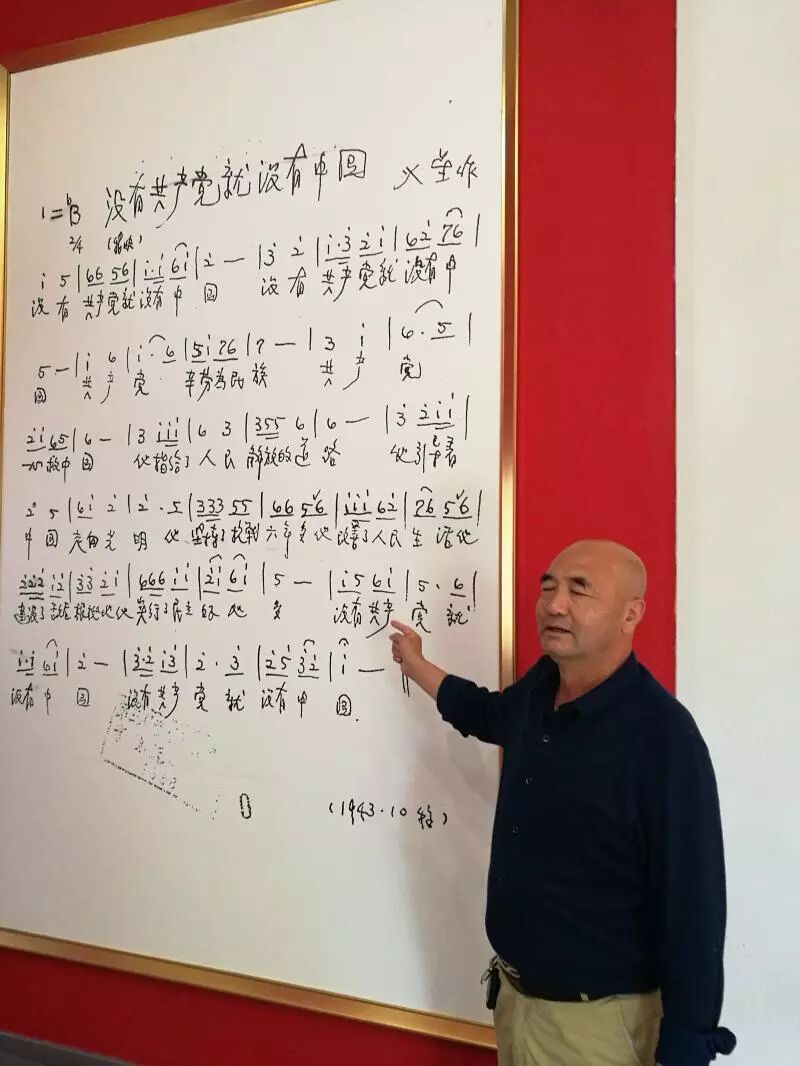 没有共产党就没有中国 火星作
1=♭B
2/4
i 5 | 66 56 | i·i 6i | 2 — | 3 2 | i·3 2i | 62 76 |
没有 共产党就 没有中 国 没有 共产党就 没有中
5 — | i 6 | i·6 | 5i 76 | 7 — | 3 i | 6·5 |
国 共产 党 辛劳为民族 共产 党
2i 65 | 6 — | 3 iii | 6 3 | 355 6 | 6 — | 3 2ii |
一心救中国 他指给了人民 解放的道路 他引导着
2 5 | 6i 2 | 2·5 | 333 55 | 66 56 | iii 62 | 76 56 |
中国 走向光明 他 坚持了抗战 六年多他 改善了人民 生活他
2222 i2 | 33 2i | 666 ii | 2i 6i | 5 — | i5 6i | 5·6 |
建设了敌后 根据地他 实行了民主 好处 多 没有共产党 就
i·i 6i | 2 — | 3·2 i3 | 2·3 | 25 32 | i — ‖
没有中国 没有共产党 就 没有中国.
(1943·10稿)